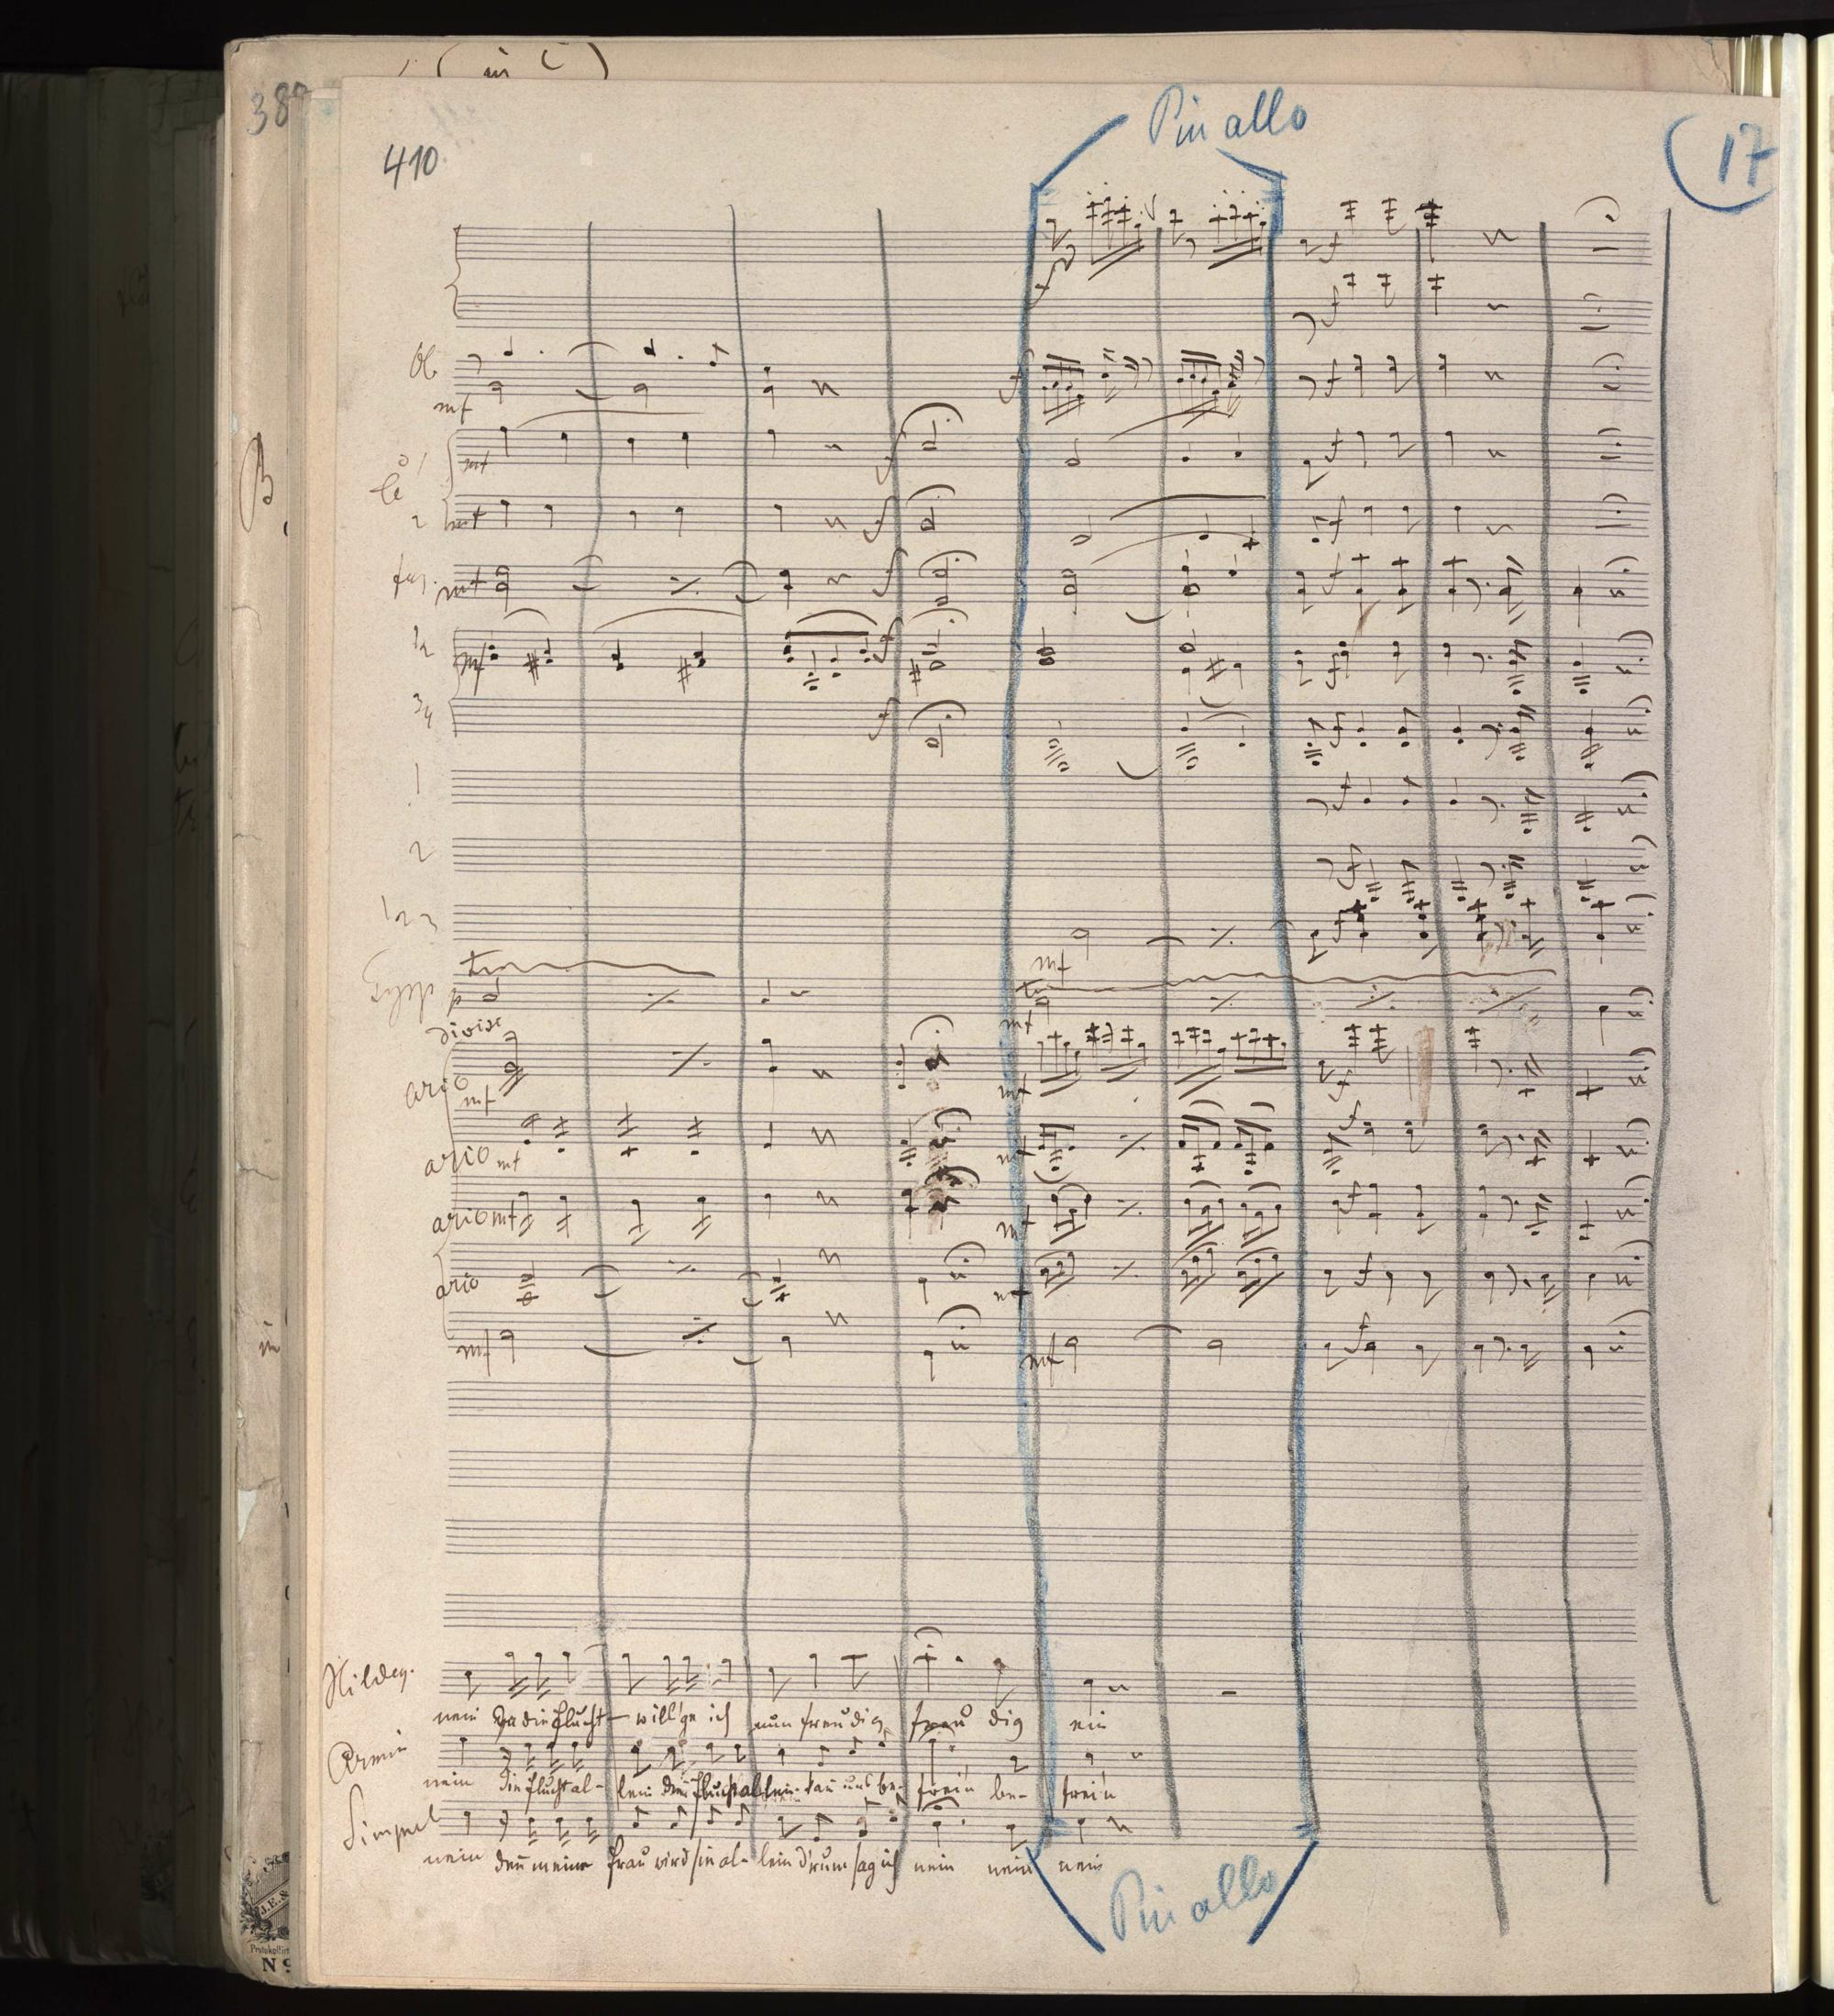 (in C)
38
410
Piu allo
17
Ob
mf
B
1
mf
2
mf
fag. mf
1 2
mf
3 4
f
1
2
1 2 3
mf
Tymp p
tr
divise
arco
mf
arco mf
arco mf
arco
mf
mf
Hildeg.
nein
die Flucht will ge ich nun freudig freu dig ein
Armin
nein die flucht al- lein die flucht allein kan uns be- frein be- frein
Simpel
nein den meine frau wird sie al- lein d'rum sag ich nein nein nein
Piu allo
J.E.&
Protokollirt
No